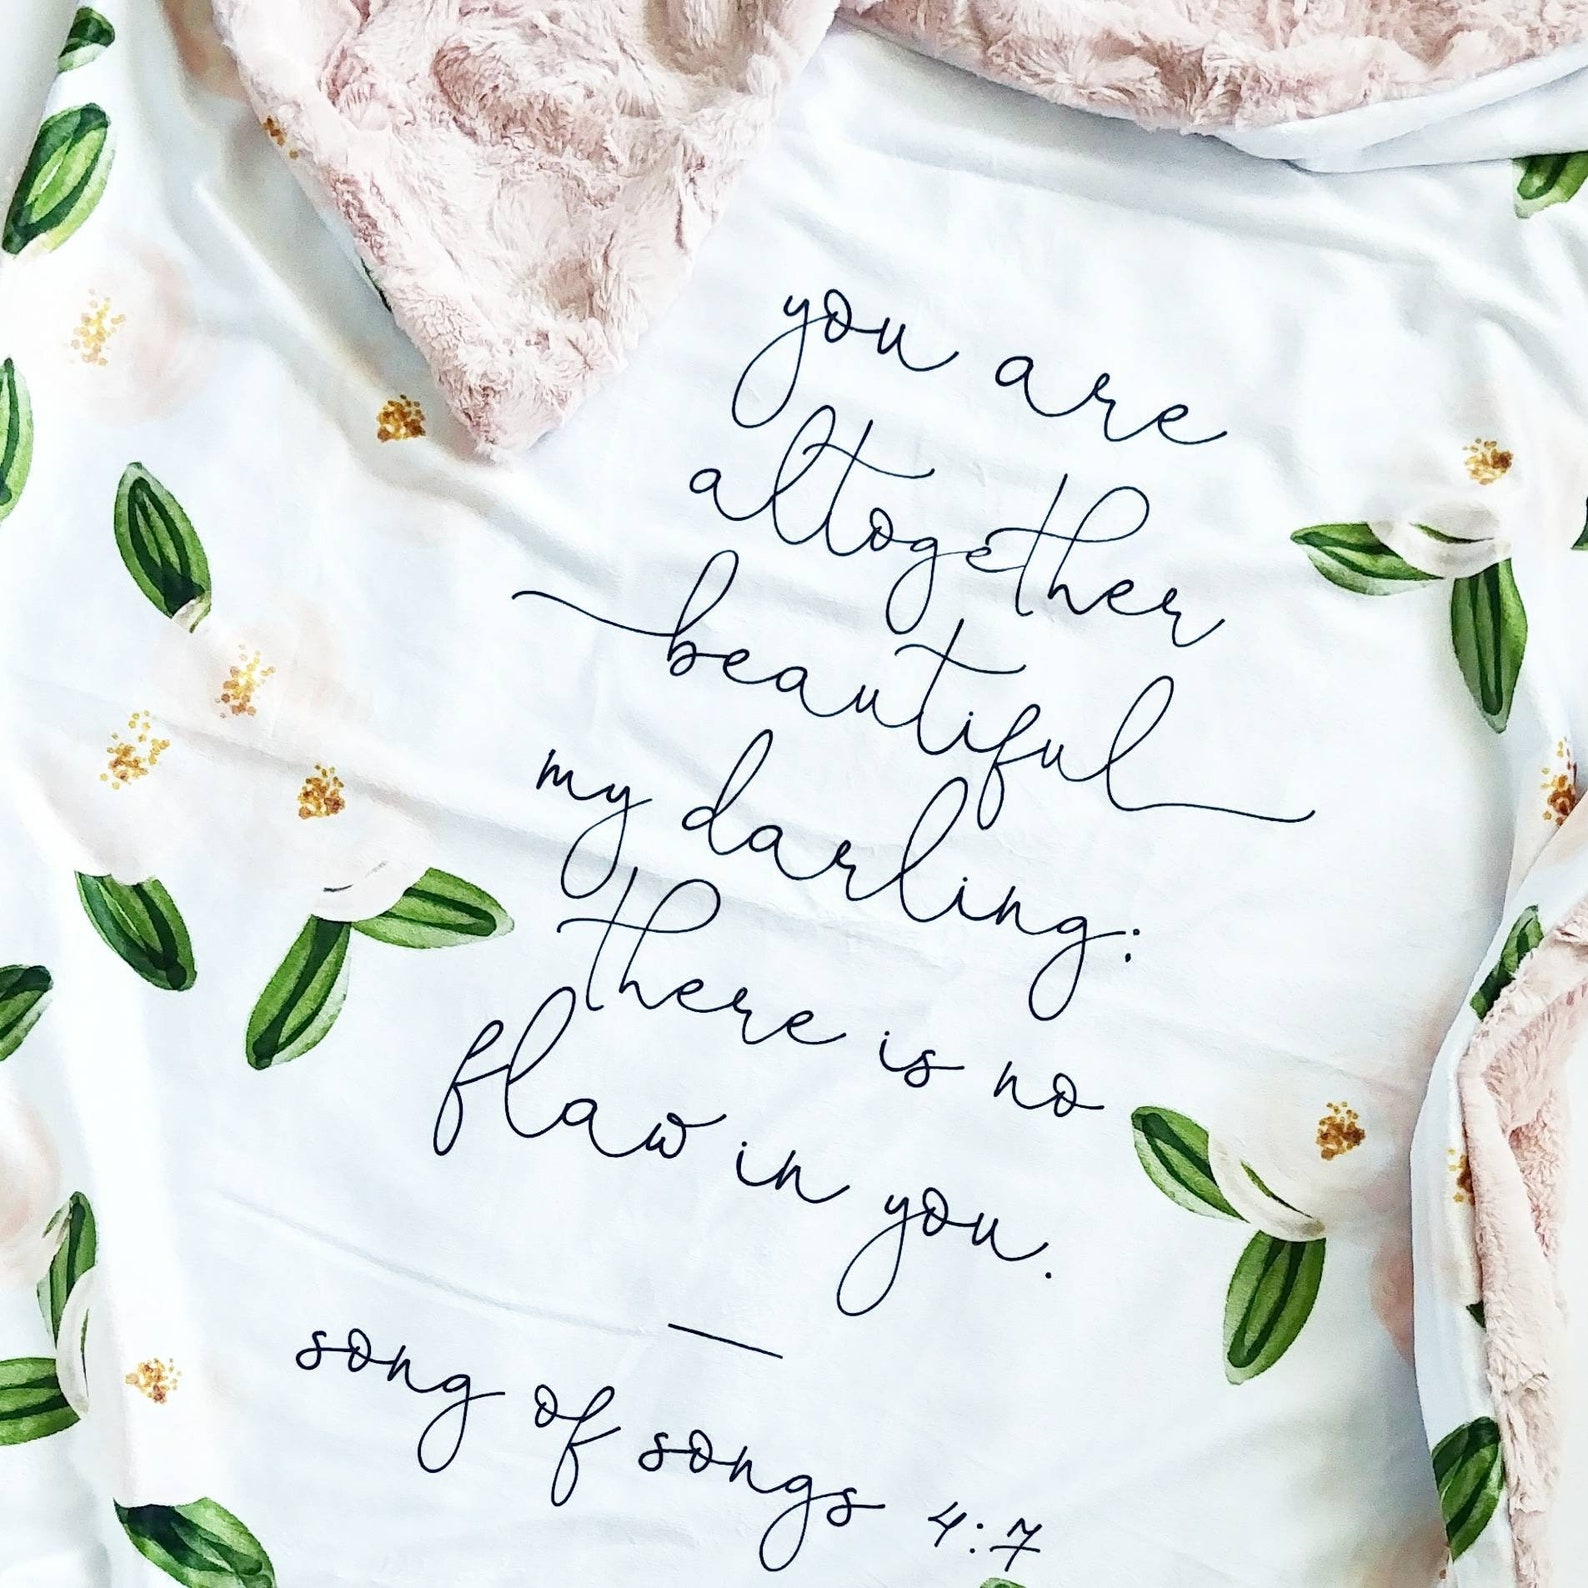 you are
altogether
beautiful
my darling:
there is no
flaw in you.
—
song of songs 4:7